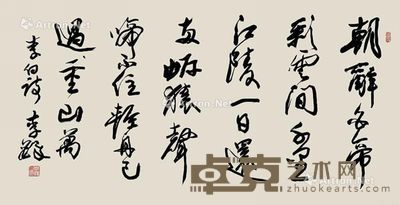 朝辭白帝
彩雲間千里
江陵一日還
兩岸猿聲
啼不住輕舟已
過重山萬
李白詩 李鐸
卓克艺术网
zhuokearts.com